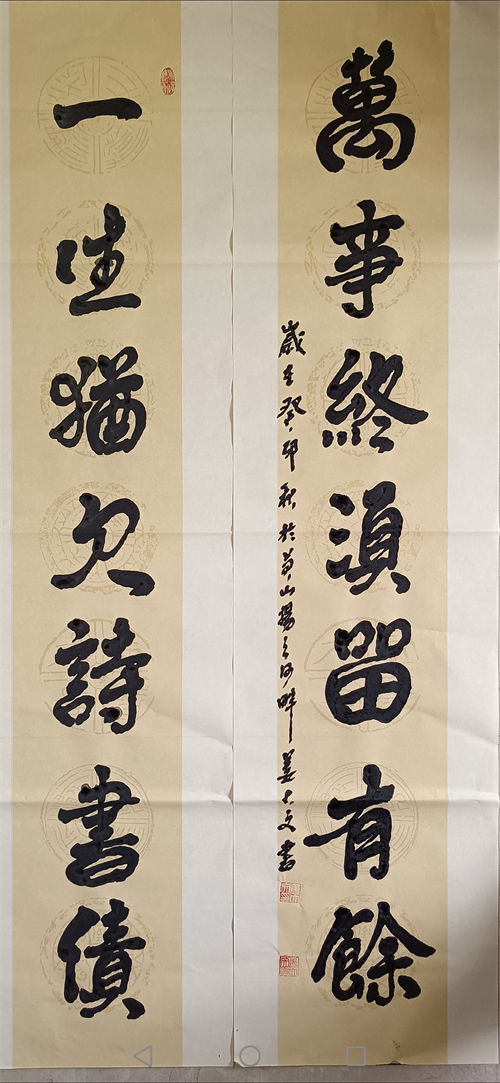 萬事終湏留有餘
歲在癸卯秋於黄山揚之河畔姜大文書
一生猶欠詩書債